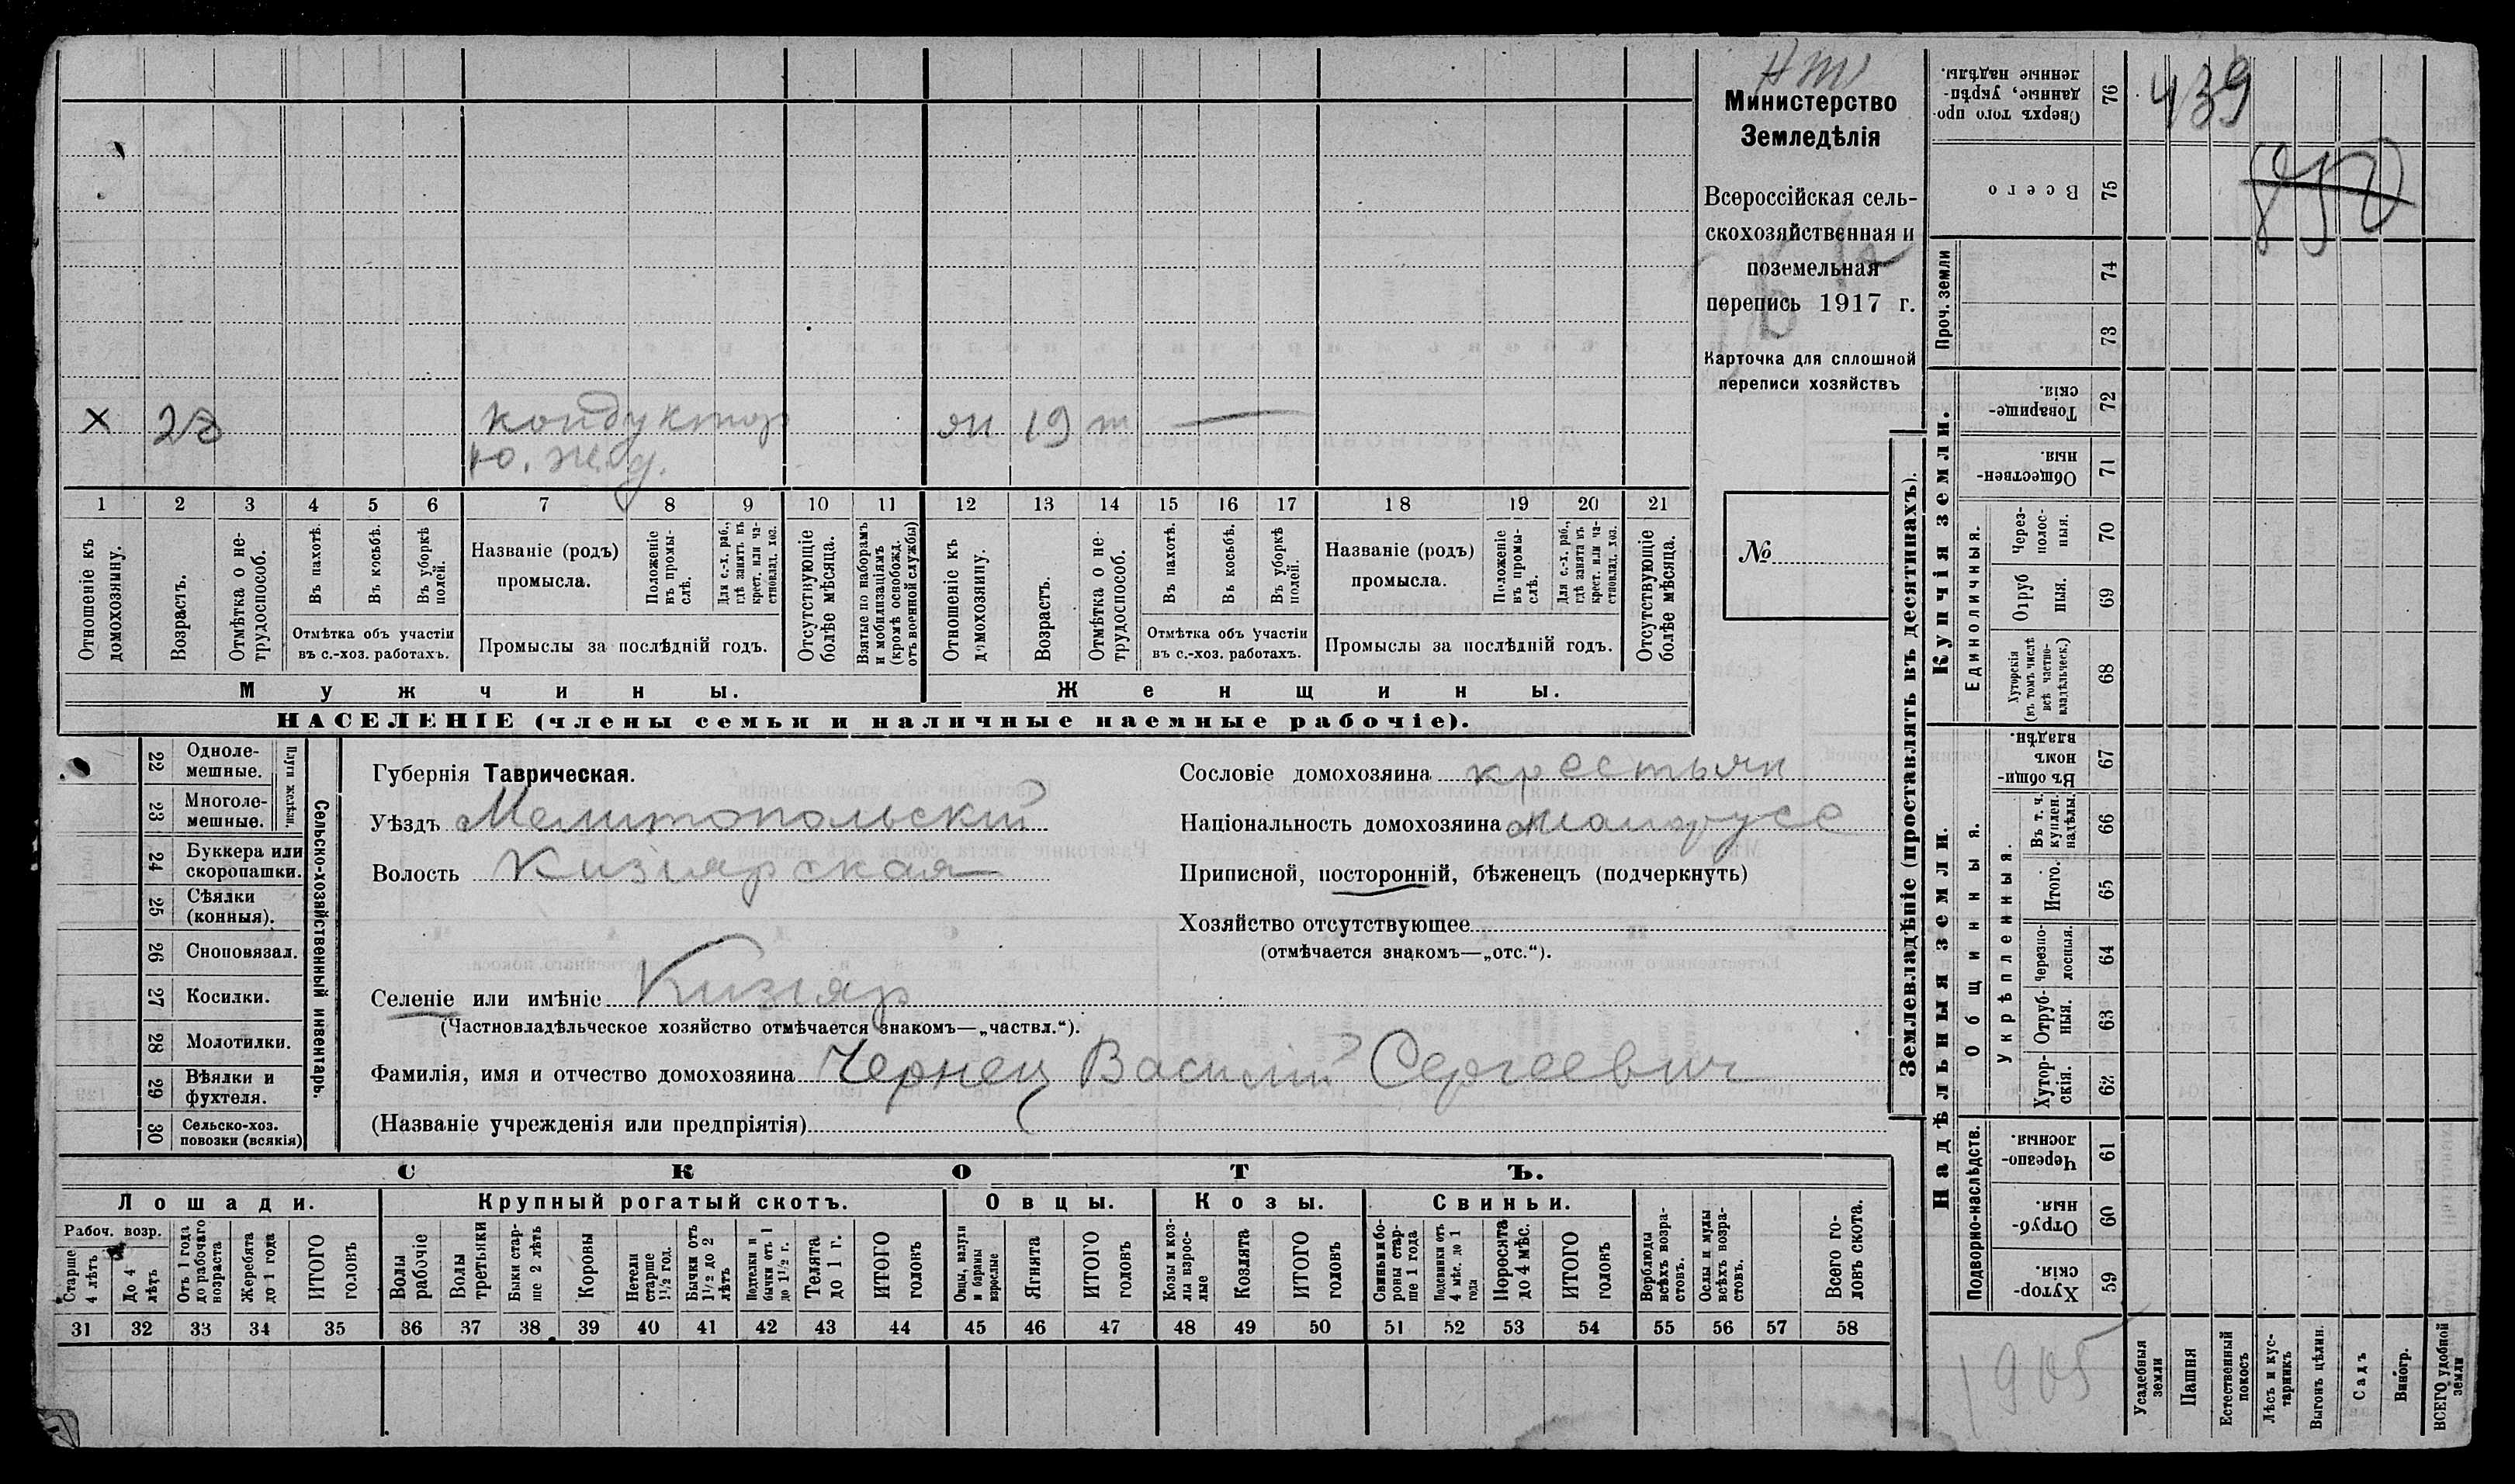 Министерство
Земледѣлія
Всероссійская сель-
скохозяйственная и
поземельная
перепись 1917 г.
Карточка для сплошной
переписи хозяйствъ
№
439
х 28 кондуктор
ю. ж. д.
19
1 2 3 4 5 6 7 8 9 10 11 12 13 14 15 16 17 18 19 20 21
Отношеніе къ домохозяину.
Возрастъ.
Отмѣтка о не-трудоспособ.
Въ пахотѣ.
Въ косьбѣ.
Въ уборкѣ полей.
Отмѣтка объ участіи
въ с.-хоз. работахъ.
Названіе (родъ)
промысла.
Положеніе въ промы-слѣ.
Для с.-х. раб., гдѣ занятъ въ крест. или ча-стновлад. хоз.
Промыслы за послѣдній годъ.
Отсутствующіе болѣе мѣсяца.
Взятые по наборамъ и мобилизаціямъ (кромѣ освобожд. отъ военной службы)
Отношеніе къ домохозяину.
Возрастъ.
Отмѣтка о не-трудоспособ.
Въ пахотѣ.
Въ косьбѣ.
Въ уборкѣ полей.
Отмѣтка объ участіи
въ с.-хоз. работахъ.
Названіе (родъ)
промысла.
Положеніе въ промы-слѣ.
Для с.-х. раб., гдѣ занята въ крест. или ча-стновлад. хоз.
Промыслы за послѣдній годъ.
Отсутствующіе болѣе мѣсяца.
Мужчины.
Женщины.
НАСЕЛЕНІЕ (члены семьи и наличные наемные рабочіе).
22 Одноле-мешные.
23 Многоле-мешные.
Плуги желѣзн.
24 Буккера или скоропашки.
25 Сѣялки (конныя).
26 Сноповязал.
27 Косилки.
28 Молотилки.
29 Вѣялки и фухтеля.
30 Сельско-хоз. повозки (всякія)
Сельско-хозяйственный инвентарь.
Губернія Таврическая.
Уѣздъ Мелитопольскій
Волость Кизиярская
Сословіе домохозяина крестьян
Національность домохозяина малорусс
Приписной, посторонній, бѣженецъ (подчеркнуть)
Хозяйство отсутствующее
(отмѣчается знакомъ—„отс.“).
Селеніе или имѣніе Кизияр
(Частновладѣльческое хозяйство отмѣчается знакомъ—„частвл.“).
Фамилія, имя и отчество домохозяина Чернец Василій Сергеевич
(Названіе учрежденія или предпріятія)
СКОТЪ.
Лошади.
Крупный рогатый скотъ.
Овцы.
Козы.
Свиньи.
Рабоч. возр.
Старше 4 лѣтъ
До 4 лѣтъ
Отъ 1 года до рабочаго возраста
Жеребята до 1 года
ИТОГО головъ
Волы рабочіе
Волы третьяки
Быки стар-ше 2 лѣтъ
Коровы
Нетели старше 1½ год.
Бычки отъ 1½ до 2 лѣтъ
Подтелки и бычки отъ 1 до 1½ г.
Телята до 1 г.
ИТОГО головъ
Овцы, валухи и бараны взрослые
Ягнята
ИТОГО головъ
Козы и коз-лы взрос-лые
Козлята
ИТОГО головъ
Свиньи бо-ровы стар-ше 1 года
Подсвинки отъ 4 мѣс. до 1 года
Поросята до 4 мѣс.
ИТОГО головъ
Верблюды всѣхъ возра-стовъ.
Ослы и мулы всѣхъ возра-стовъ.
Всего го-ловъ скота.
31 32 33 34 35 36 37 38 39 40 41 42 43 44 45 46 47 48 49 50 51 52 53 54 55 56 57 58
Землевладѣніе (проставлять въ десятинахъ).
Купчія земли.
Надѣльныя земли.
Проч. земли
Единоличныя.
Общинныя.
Укрѣпленныя.
Подворно-наслѣдств.
76 Сверхъ того про-данные, укрѣп-ленные надѣлы.
75 Всего
74
73
72 Товарище-скія.
71 Обществен-ныя.
70 Через-полос-ныя.
69 Отруб ныя.
68 Хуторскія (въ томъ числѣ всѣ частно-владѣльческ.)
67 Въ общи-номъ владѣн.
66 Въ т. ч. куплен. надѣлы.
65 Итого.
64 Черезпо-лосныя.
63 Отруб-ныя.
62 Хутор-скія.
61 Черезпо-лосныя.
60 Отруб-ныя.
59 Хутор-скія.
1905
Усадебныя земли
Пашня
Естественный покосъ
Лѣсъ и кус-тарникъ
Выгонъ цѣлин.
Садъ
Виногр.
ВСЕГО удобной земли